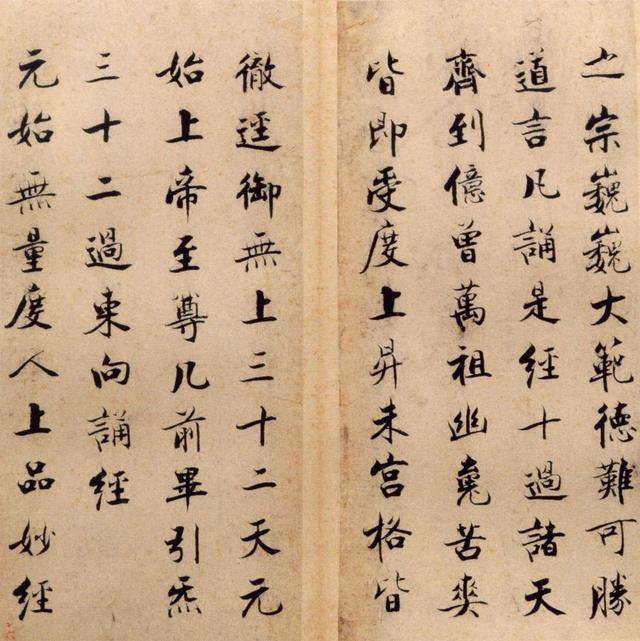 之宗巍巍大範德難可勝
道言凡誦是經十過諸天
齊到億曾萬祖幽魂苦爽
皆即受度上昇朱宮格皆
徹逕御無上三十二天元
始上帝至尊几前畢引炁
三十二過東向誦經
元始無量度人上品妙經
十六